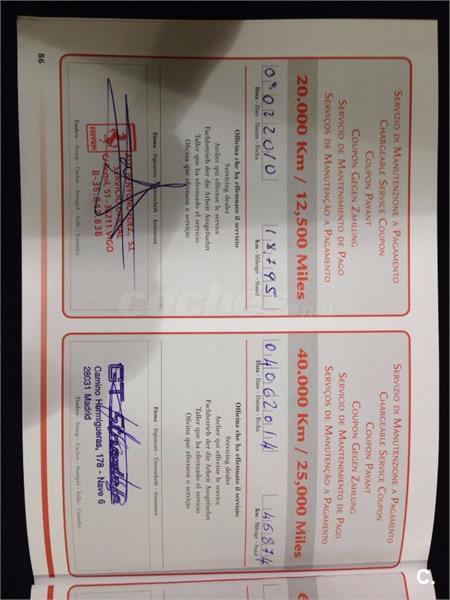 SERVIZIO DI MANUTENZIONE A PAGAMENTO
CHARGEABLE SERVICE COUPON
COUPON PAYANT
COUPON GEGEN ZAHLUNG
SERVICIO DE MANTENIMIENTO DE PAGO
SERVIÇOS DE MANUTENÇÃO A PAGAMENTO
20.000 Km / 12,500 Miles
09022010 18795
Data - Date - Datum - Fecha Km - Mileage - Stand
Officina che ha effettuato il servizio
Servicing dealer
Atelier qui effectue le service
Fachbetrieb der die Arbeit Ausgefuehrt
Taller que ha efectuado el servicio
Oficina que efectuou o serviço
Firma - Signature - Unterschrift - Assinatura
SERVICIO OFICIAL
C/ Romil, 51 - 36211 VIGO
FERRARI
Timbro - Stamp - Cachet - Stempel - Sello - Carimbo
86
SERVIZIO DI MANUTENZIONE A PAGAMENTO
CHARGEABLE SERVICE COUPON
COUPON PAYANT
COUPON GEGEN ZAHLUNG
SERVICIO DE MANTENIMIENTO DE PAGO
SERVIÇOS DE MANUTENÇÃO A PAGAMENTO
40.000 Km / 25,000 Miles
04062014 45874
Data - Date - Datum - Fecha Km - Mileage - Stand
Officina che ha effettuato il servizio
Servicing dealer
Atelier qui effectue le service
Fachbetrieb der die Arbeit Ausgefuehrt
Taller que ha efectuado el servicio
Oficina que efectuou o serviço
Firma - Signature - Unterschrift - Assinatura
Camino Hormigueras, 178 - Nave 6
28031 Madrid
Timbro - Stamp - Cachet - Stempel - Sello - Carimbo
6
coches.net
C.